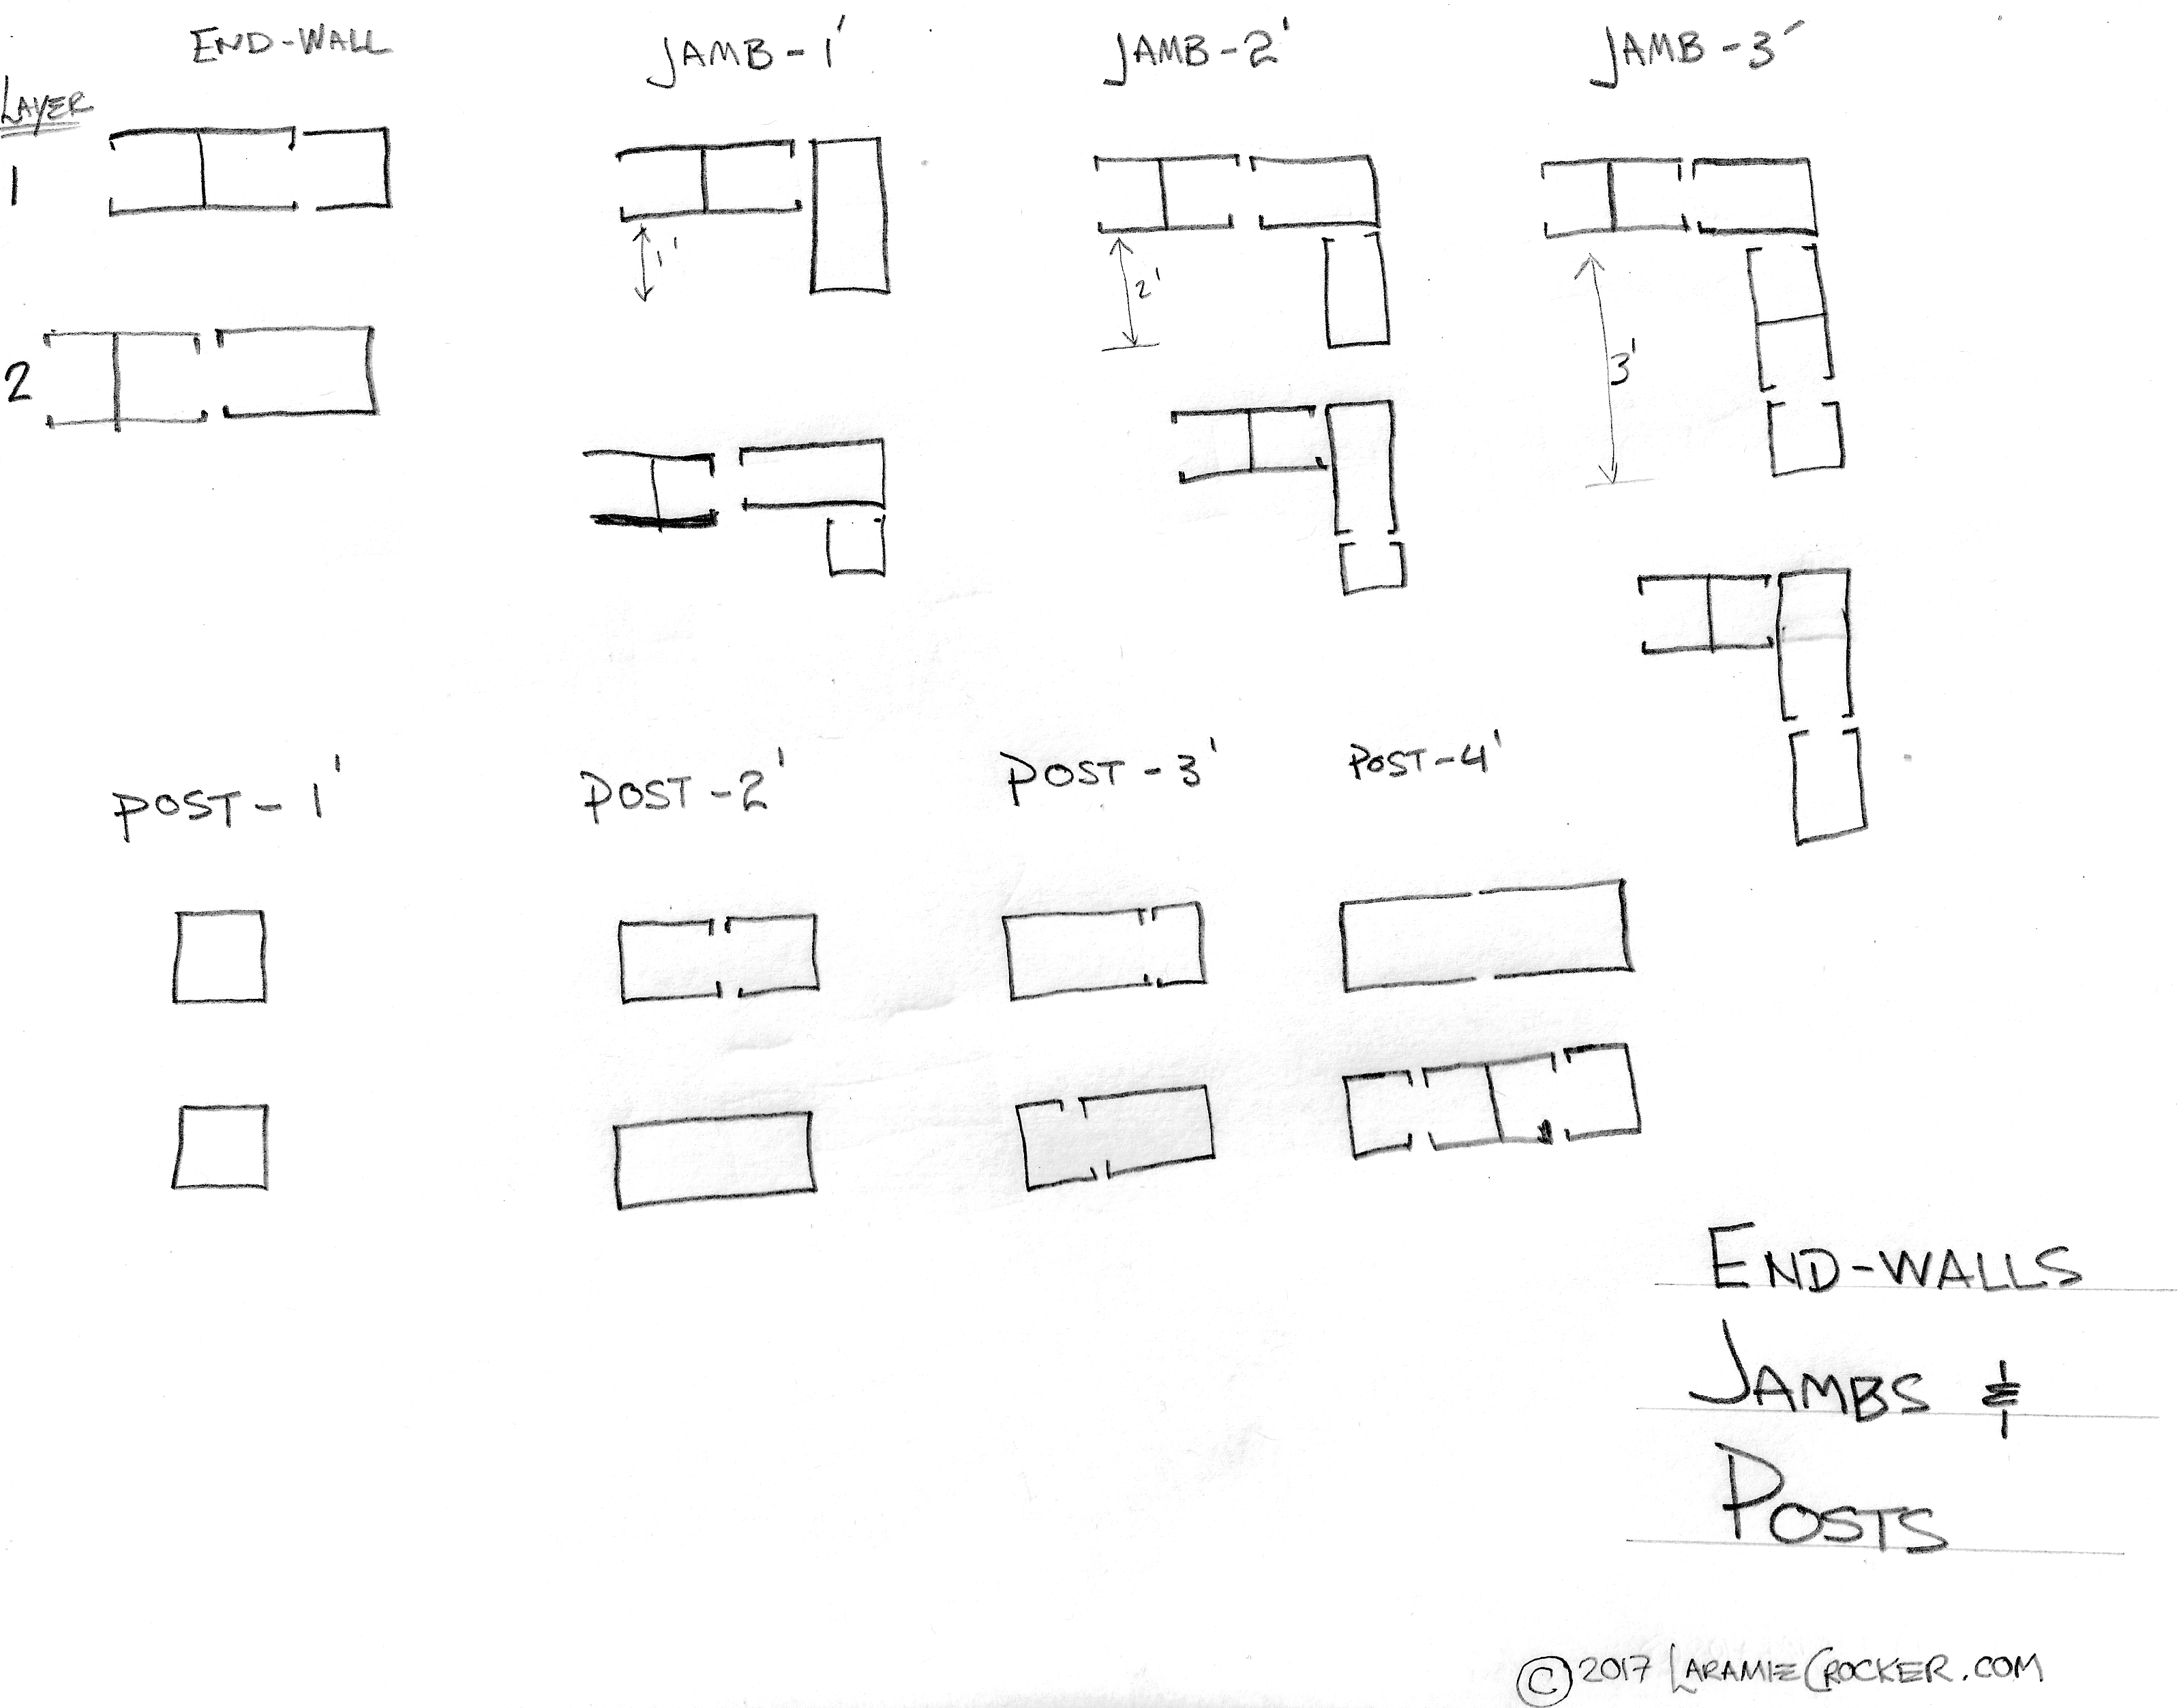 END-WALL
JAMB-1'
JAMB-2'
JAMB-3'
LAYER
1
1'
2'
3'
2
POST-1'
POST-2'
POST-3'
POST-4'
END-WALLS
JAMBS &
POSTS
© 2017 LARAMIECROCKER.COM